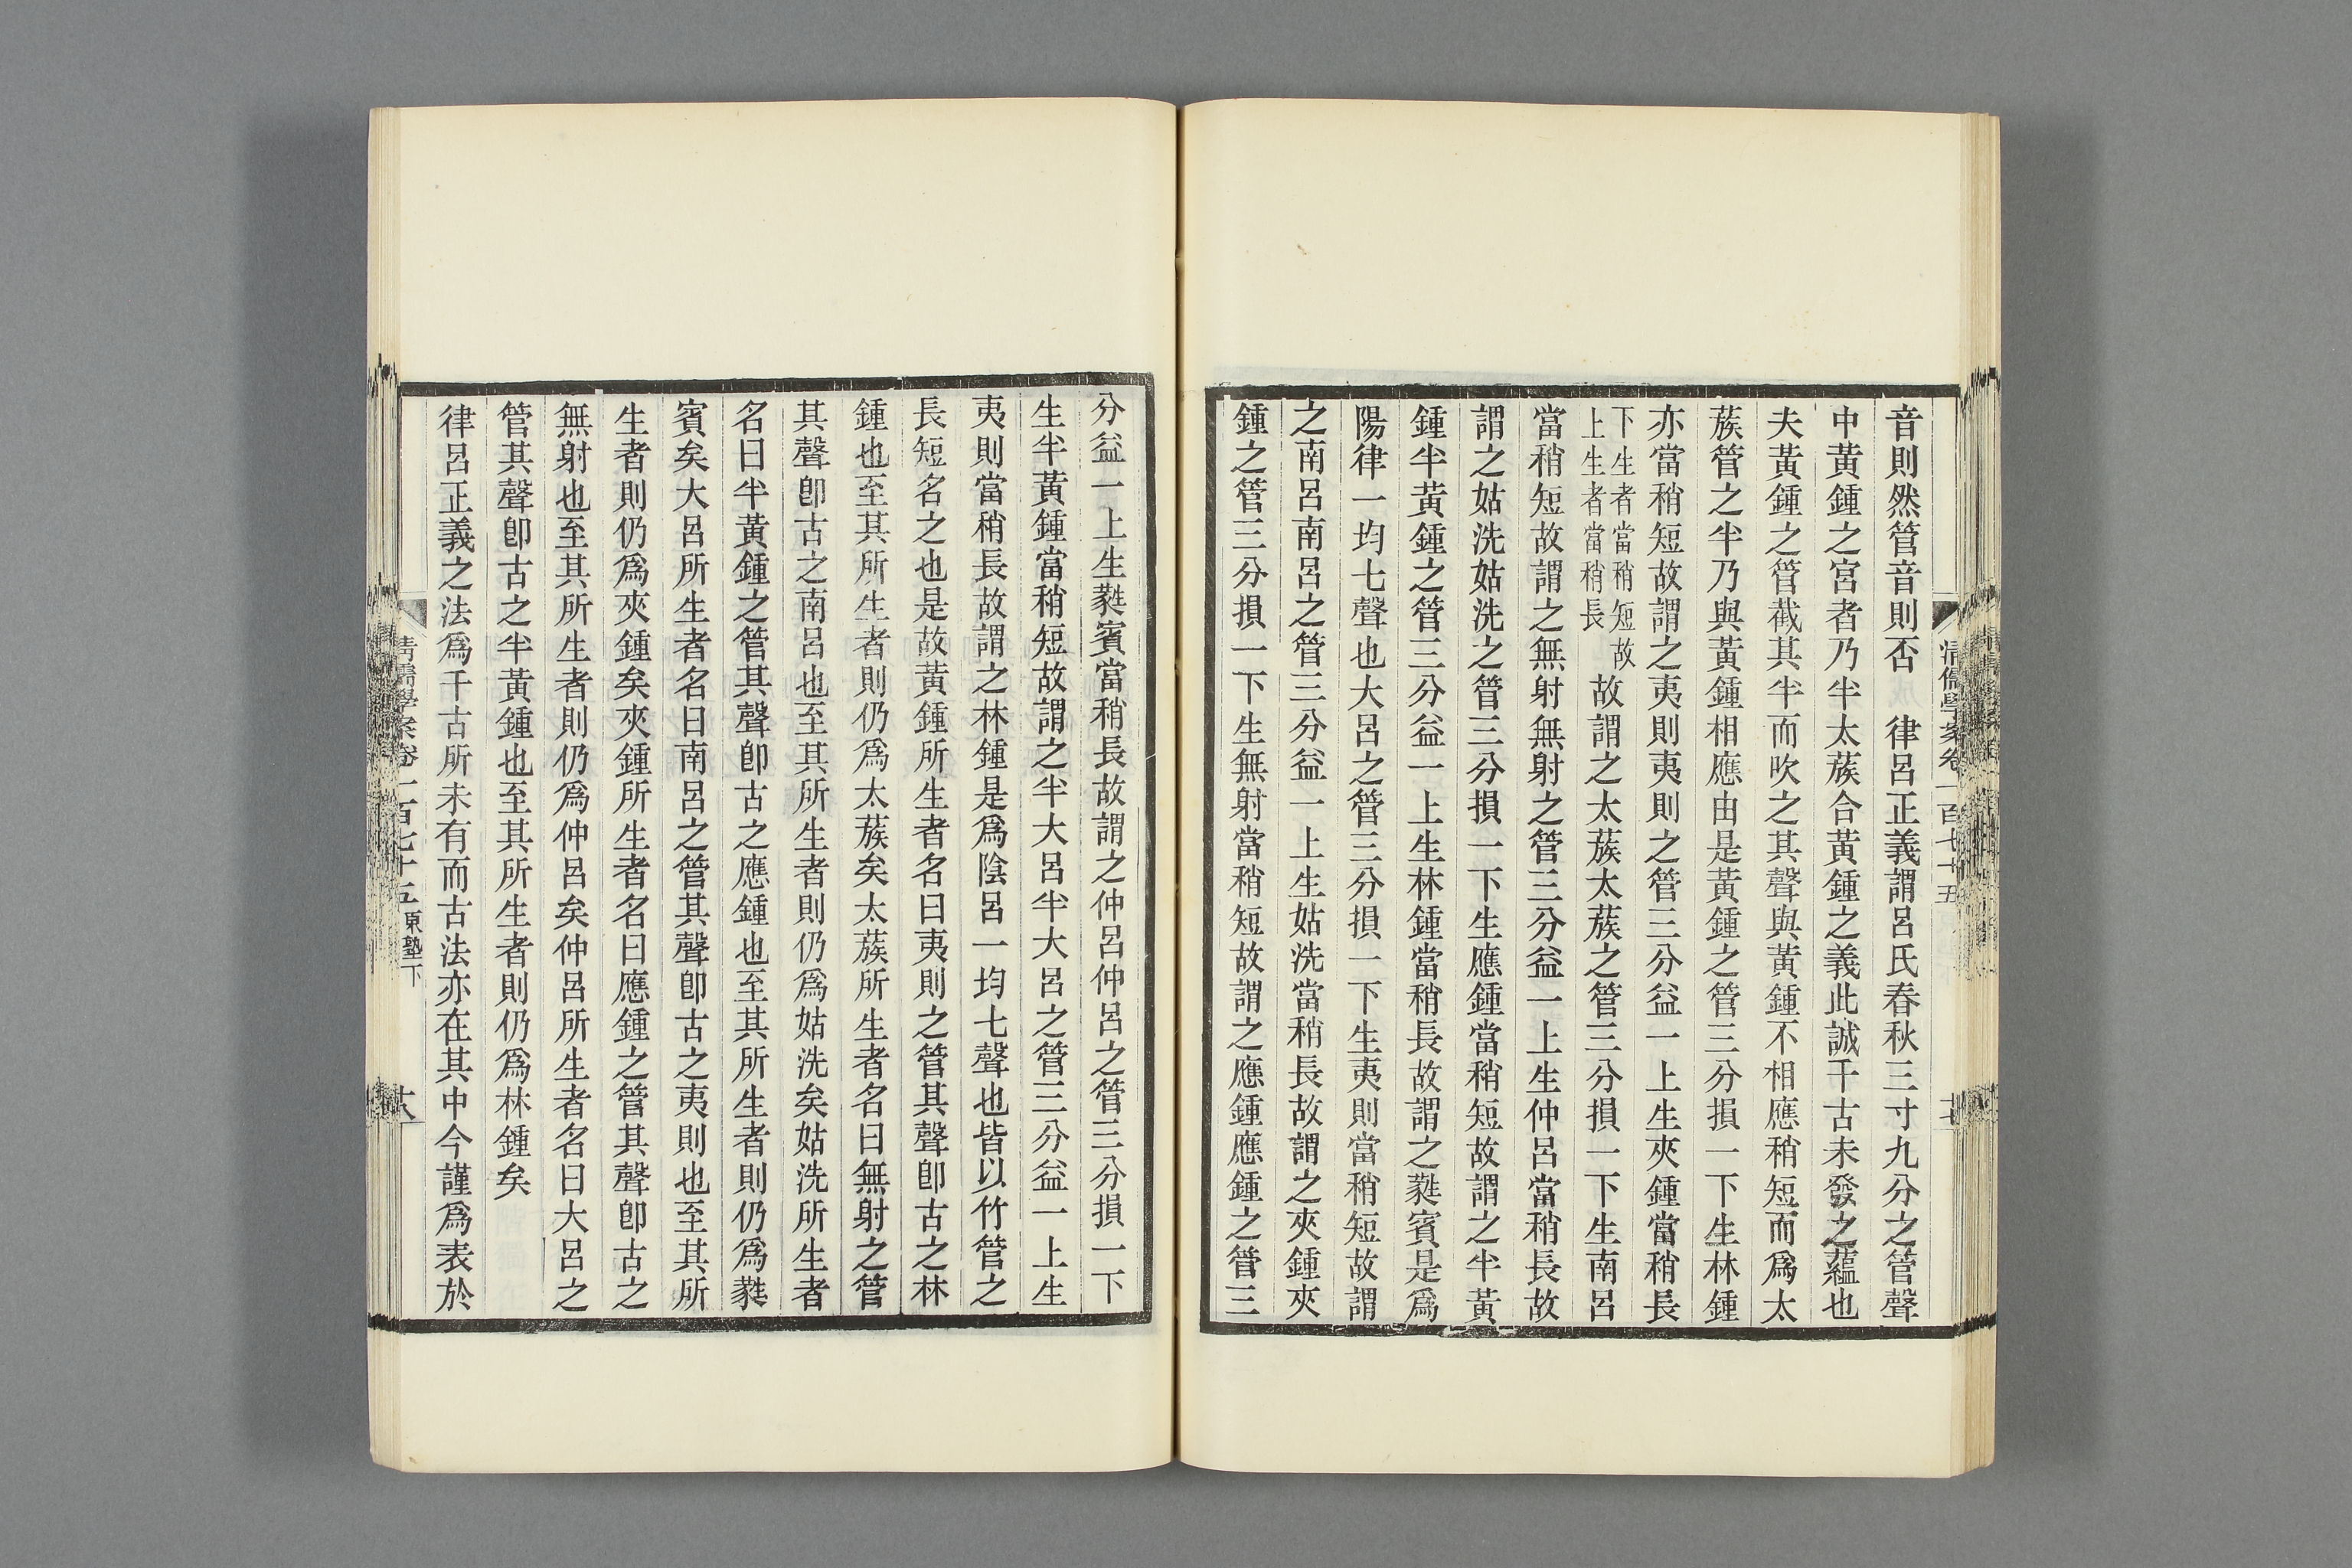 音則然管音則否　律呂正義謂呂氏春秋三寸九分之管聲
中黃鍾之宮者乃半太蔟合黃鍾之義此誠千古未發之蘊也
夫黃鍾之管截其半而吹之其聲與黃鍾不相應稍短而爲太
蔟管之半乃與黃鍾相應由是黃鍾之管三分損一下生林鍾
亦當稍短故謂之夷則夷則之管三分益一上生夾鍾當稍長
下生者當稍短故
上生者當稍長
故謂之太蔟太蔟之管三分損一下生南呂
當稍短故謂之無射無射之管三分益一上生仲呂當稍長故
謂之姑洗姑洗之管三分損一下生應鍾當稍短故謂之半黃
鍾半黃鍾之管三分益一上生林鍾當稍長故謂之蕤賓是爲
陽律一均七聲也大呂之管三分損一下生夷則當稍短故謂
之南呂南呂之管三分益一上生姑洗當稍長故謂之夾鍾夾
鍾之管三分損一下生無射當稍短故謂之應鍾應鍾之管三
清儒學案卷一百七十五
十七
分益一上生蕤賓當稍長故謂之仲呂仲呂之管三分損一下
生半黃鍾當稍短故謂之半大呂半大呂之管三分益一上生
夷則當稍長故謂之林鍾是爲陰呂一均七聲也皆以竹管之
長短名之也是故黃鍾所生者名曰夷則之管其聲卽古之林
鍾也至其所生者則仍爲太蔟矣太蔟所生者名曰無射之管
其聲卽古之南呂也至其所生者則仍爲姑洗矣姑洗所生者
名曰半黃鍾之管其聲卽古之應鍾也至其所生者則仍爲蕤
賓矣大呂所生者名曰南呂之管其聲卽古之夷則也至其所
生者則仍爲夾鍾矣夾鍾所生者名曰應鍾之管其聲卽古之
無射也至其所生者則仍爲仲呂矣仲呂所生者名曰大呂之
管其聲卽古之半黃鍾也至其所生者則仍爲林鍾矣
律呂正義之法爲千古所未有而古法亦在其中今謹爲表於
清儒學案卷一百七十五東塾下
十八